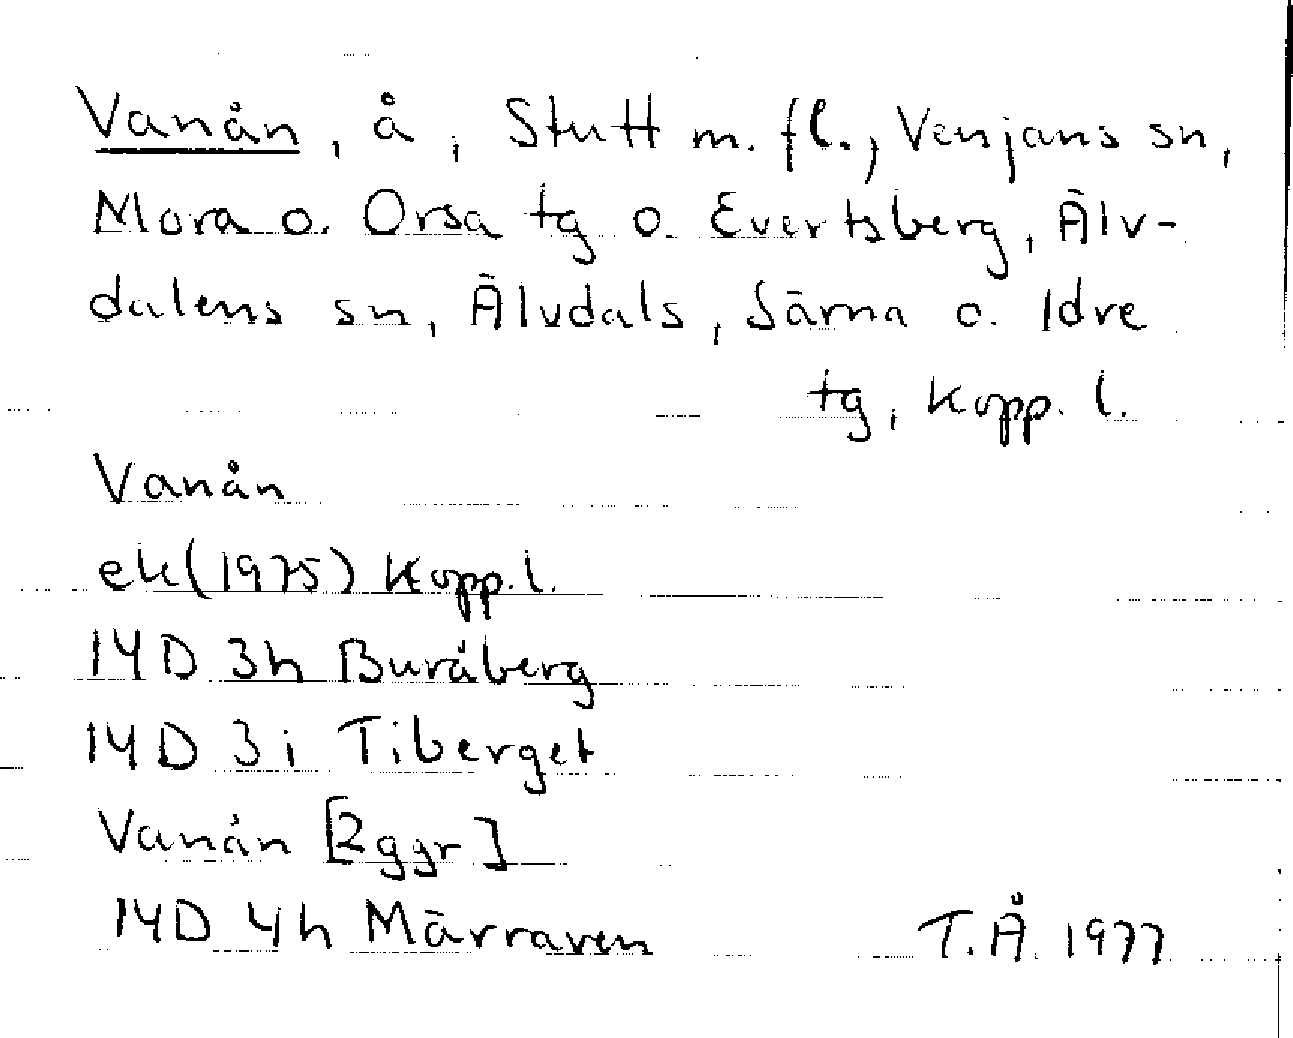 Vanån, å, Stutt m. fl., Venjans sn,
Mora o. Orsa tg o. Evertsberg, Älv-
dalens sn, Älvdals, Särna o. Idre
tg, Kopp. l.
Vanån
ek (1975) Kopp. l.
14D 3h Buråberg
14D 3i Tiberget
Vanån [2ggr]
14D 4h Märraven
T.Å. 1977